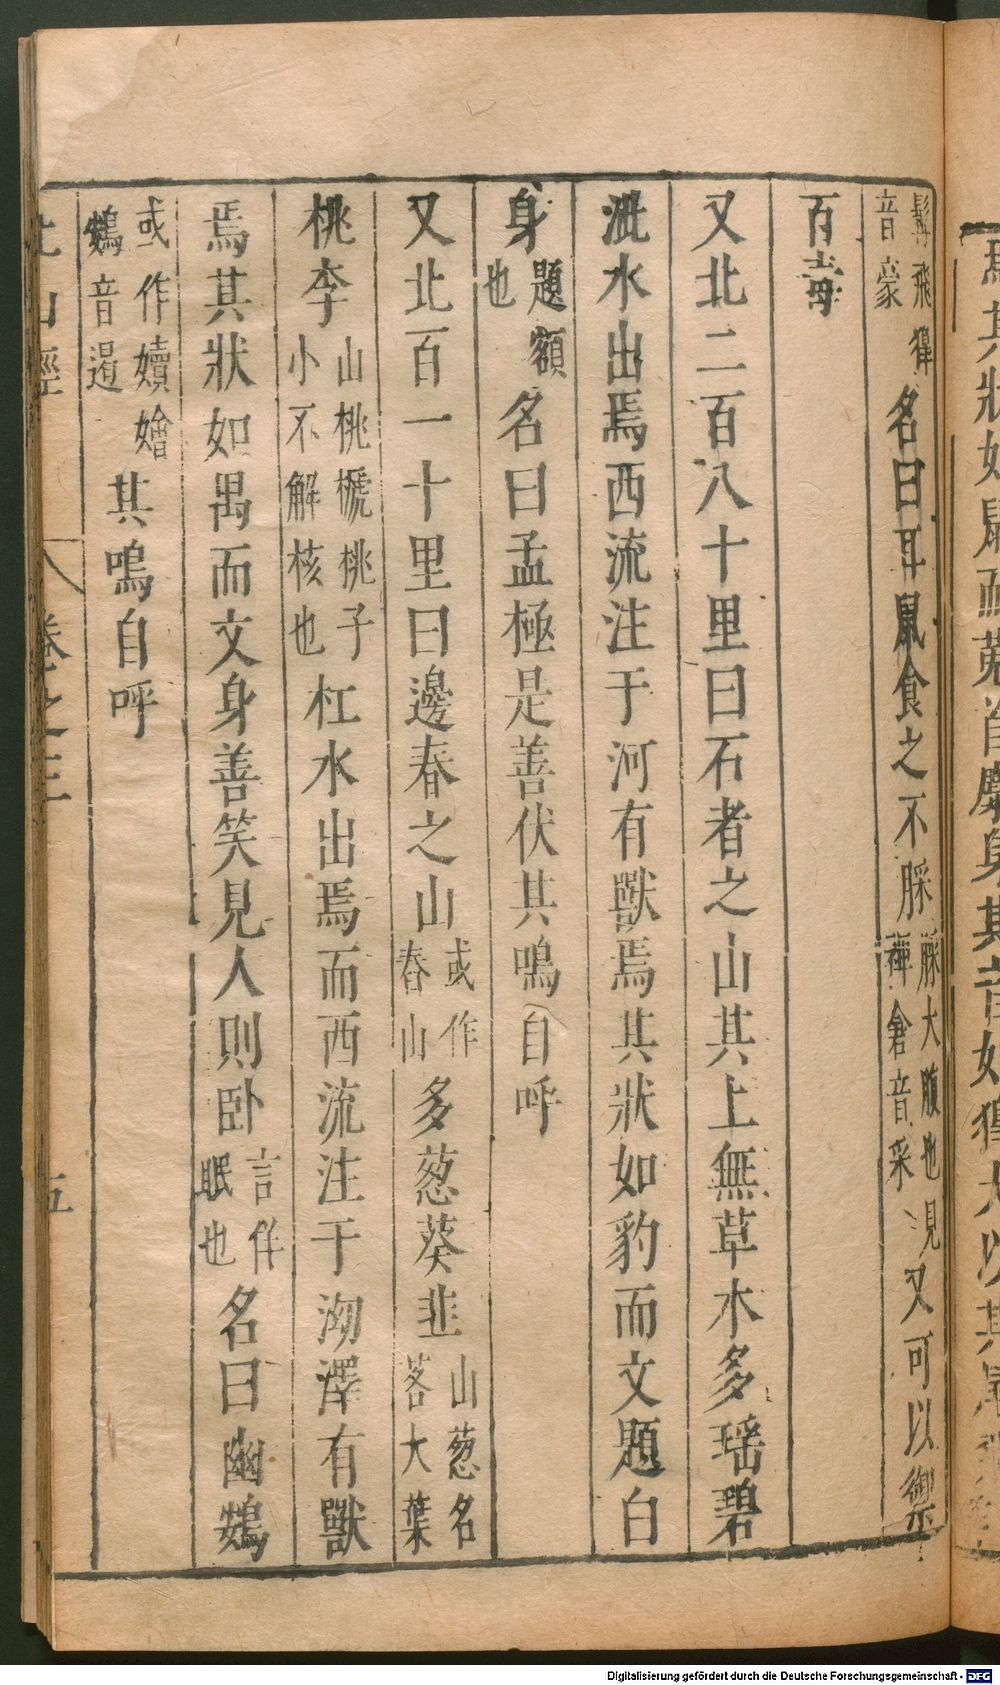 焉其狀如鼠而菟首麋身其音如獋犬以其尾飛
髯飛獋音豪名曰耳鼠食之不脎脎大腹也見裨倉音采又可以禦
百毒
又北二百八十里曰石者之山其上無草木多瑤碧
泚水出焉西流注于河有獸焉其狀如豹而文題白
身題額也名曰孟極是善伏其鳴自呼
又北百一十里曰邊春之山或作春山多葱葵韭山葱名茖大葉
桃李山桃榹桃子小不解核也杠水出焉而西流注于泑澤有獸
焉其狀如禺而文身善笑見人則卧言佯眠也名曰幽鴳
或作嬻嬒鴳音遏其鳴自呼
北山經 卷之三 五
Digitalisierung gefördert durch die Deutsche Forschungsgemeinschaft - DFG